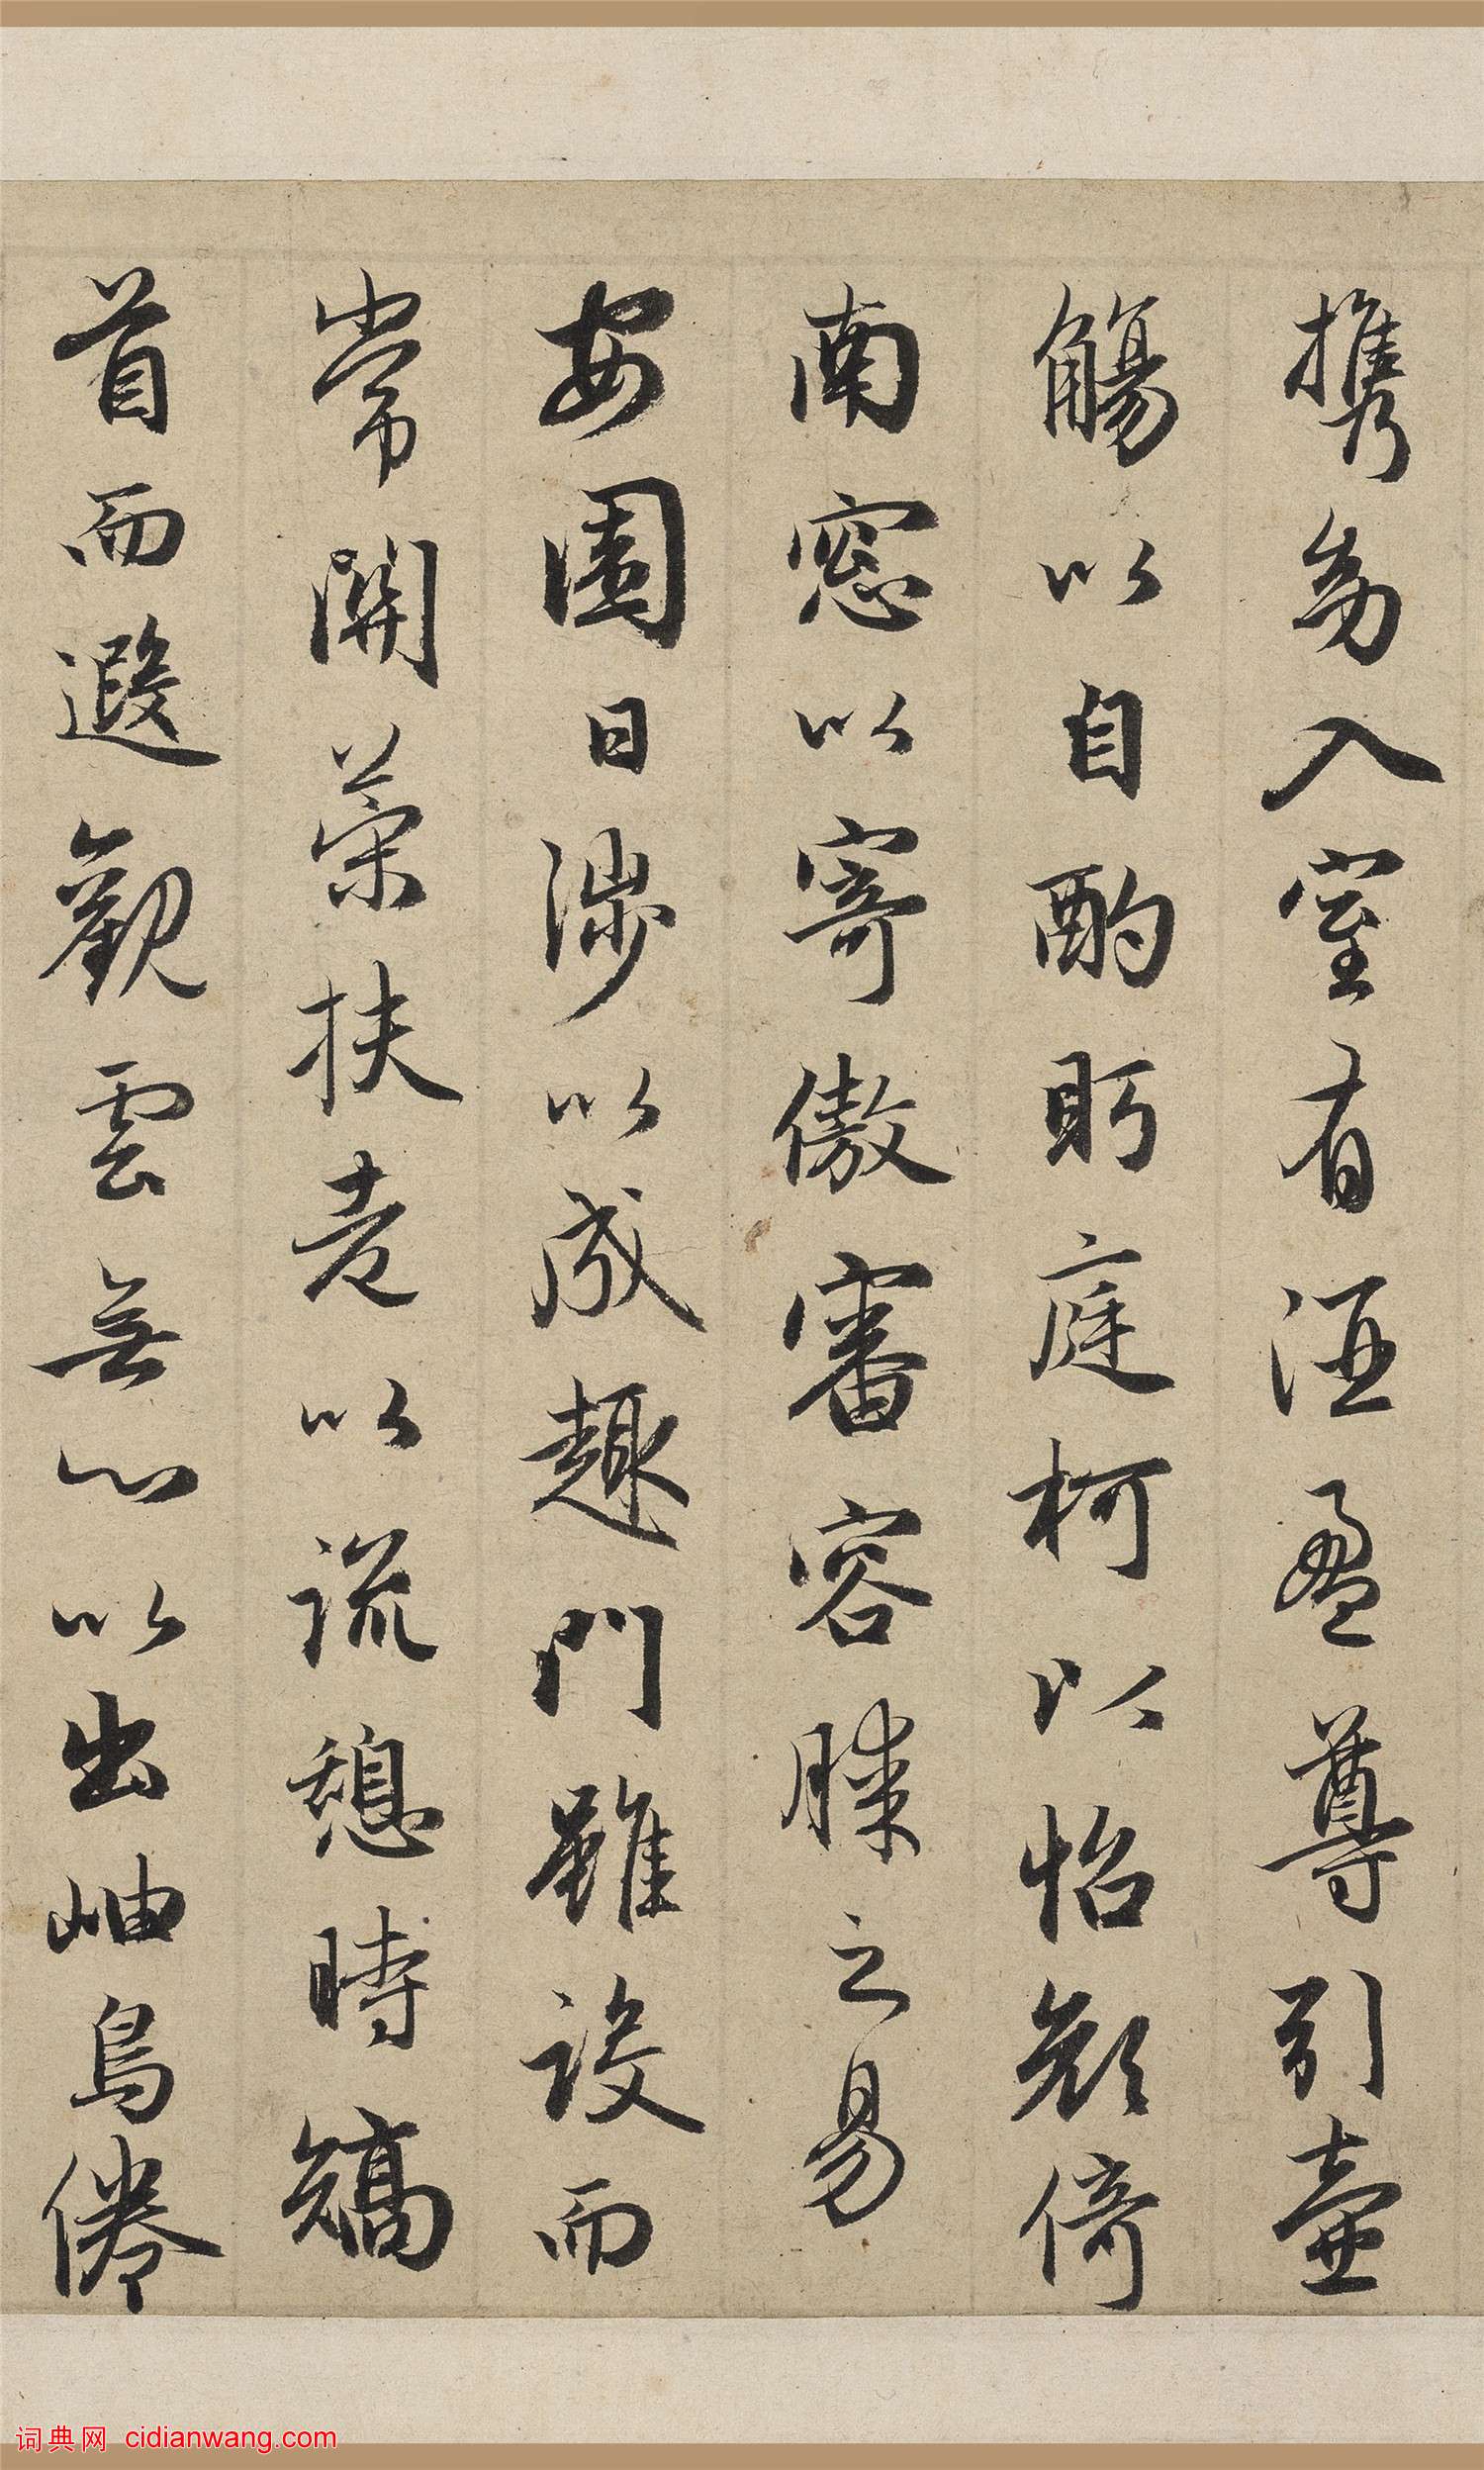 携幼入室有酒盈尊引壺
觴以自酌眄庭柯以怡顔倚
南窓以寄傲審容膝之易
安園日涉以成趣門雖設而
常関策扶老以流憩時矯
首而遐觀雲無心以出岫鳥倦
词典网 cidianwang.com